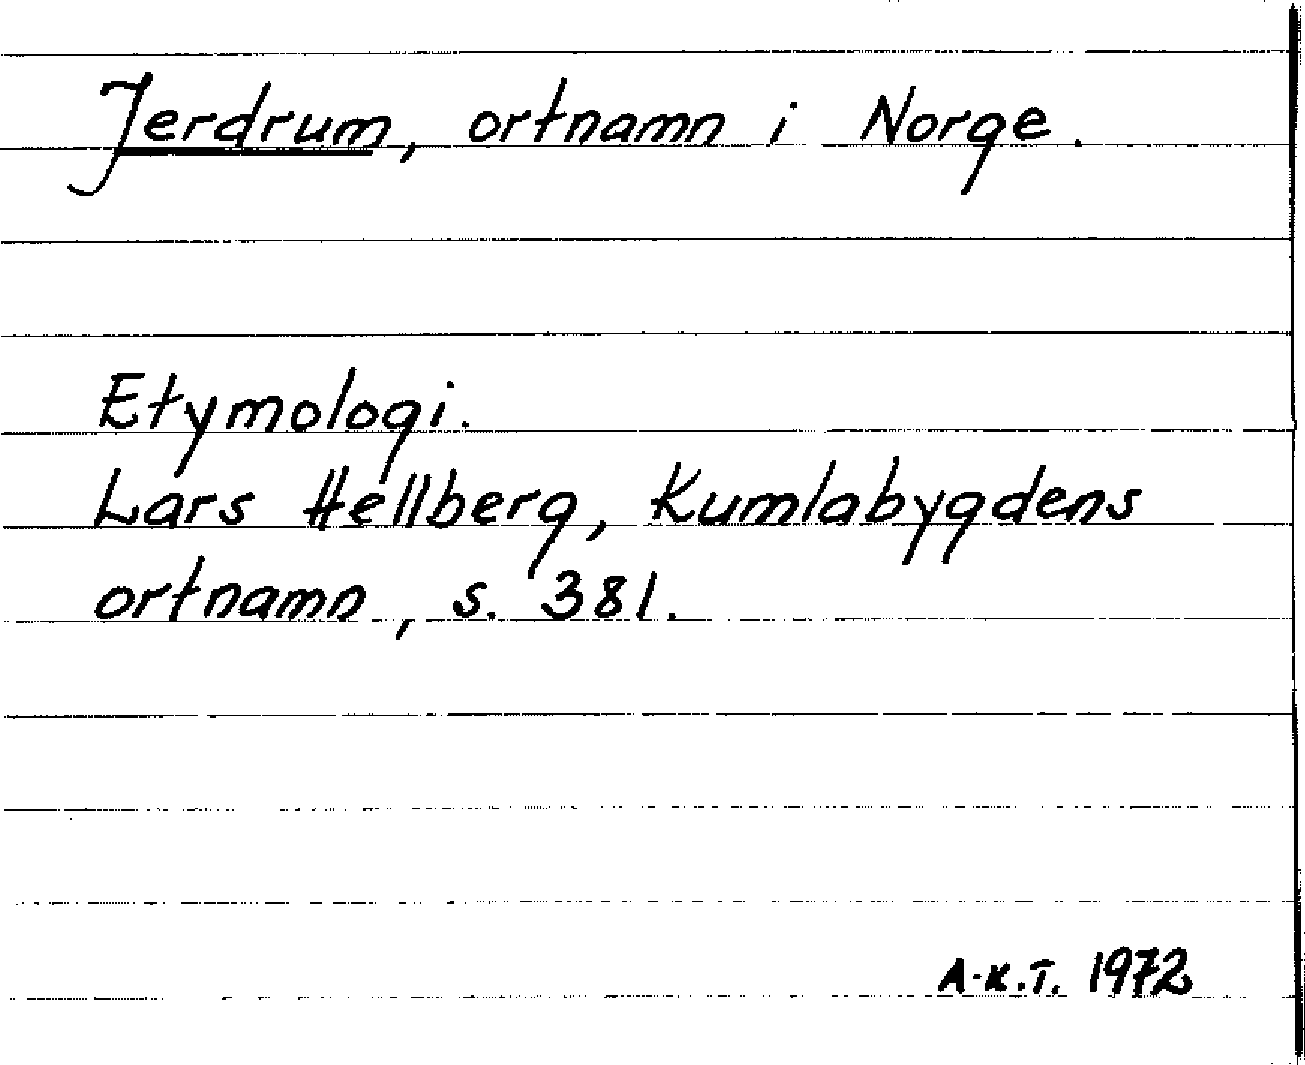 Jerdrum, ortnamn i Norge.
Etymologi.
Lars Hellberg, Kumlabygdens
ortnamn, s. 381.
A-K.T. 1972